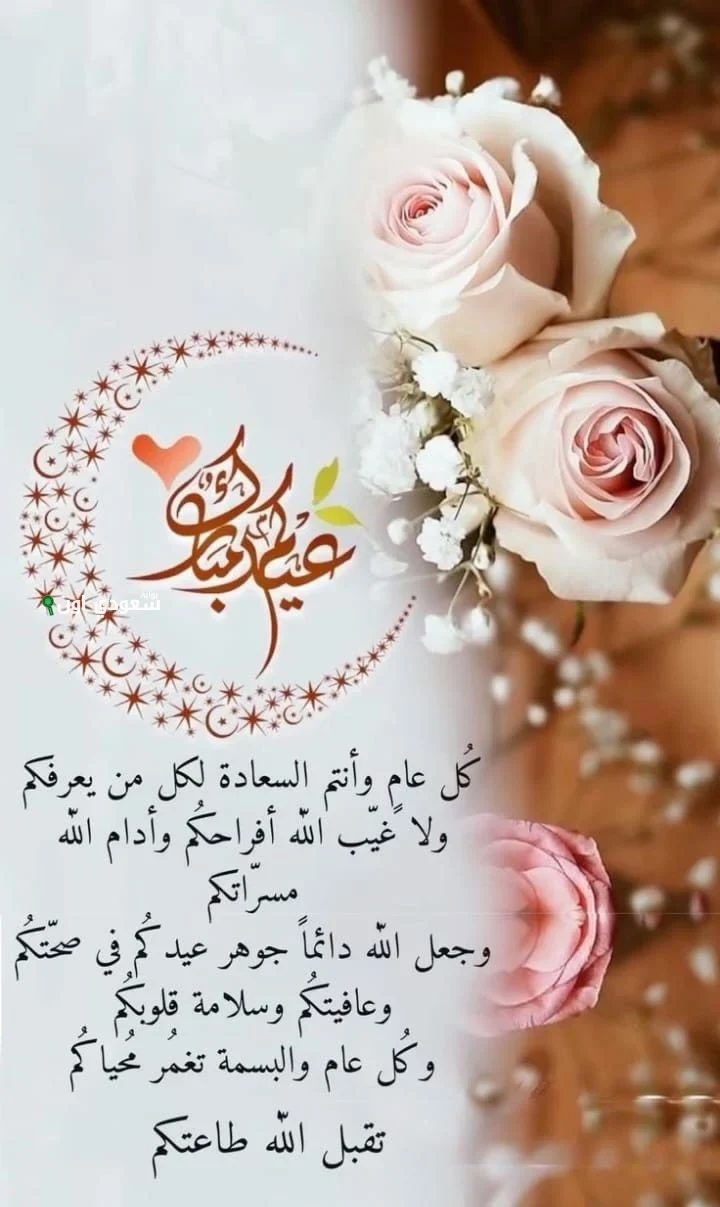 عيدكم مبارك
بوابة
سعودي اون
كُل عامٍ وأنتم السعادة لكل من يعرفكم
ولا غيّب الله أفراحكُم وأدام الله
مسرّاتكم
وجعل الله دائماً جوهر عيدكُم في صحّتكُم
وعافيتكُم وسلامة قلوبكُم
وكُل عام والبسمة تغمُر مُحياكُم
تقبل الله طاعتكم